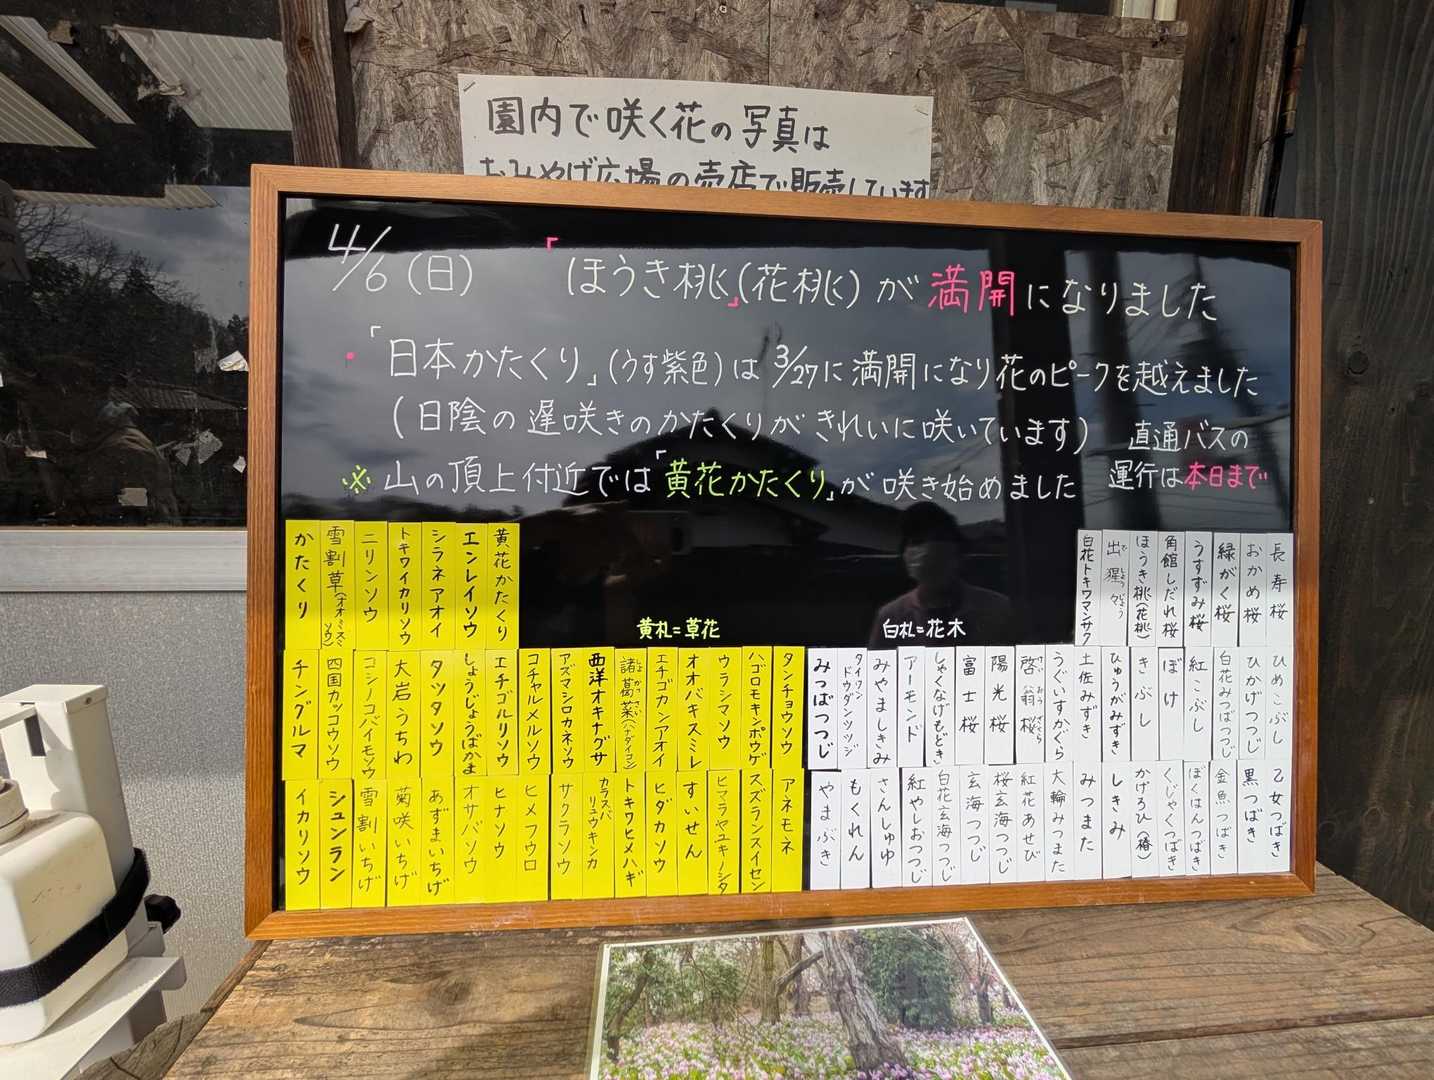 園内で咲く花の写真は
おみやげ広場の売店で販売しています
4/6(日) 「ほうき桃」(花桃)が満開になりました
・「日本かたくり」(うす紫色)は3/27に満開になり花のピークを越えました
(日陰の遅咲きのかたくりがきれいに咲いています)
※山の頂上付近では「黄花かたくり」が咲き始めました
直通バスの
運行は本日まで
黄札=草花
白札=花木
かたくり
雪割草(オオミスミソウ)
ニリンソウ
トキワイカリソウ
シラネアオイ
エンレイソウ
黄花かたくり
白花トキワマンサク
出猩々
でしょうじょう
ほうき桃(花桃)
角館しだれ桜
うすずみ桜
緑がく桜
おかめ桜
長寿桜
チングルマ
四国カッコウソウ
コシノコバイモソウ
大岩うちわ
タツタソウ
しょうじょうばかま
エチゴルリソウ
コチャルメルソウ
アズマシロカネソウ
西洋オキナグサ
諸葛菜(ハナダイコン)
しょかつさい
エチゴカンアオイ
オオバキスミレ
ウラシマソウ
ハゴロモキンポウゲ
タンチョウソウ
みつばつつじ
タイワンドウダンツツジ
みやましきみ
アーモンド
しゃくなげもどき
富士桜
陽光桜
啓翁桜
けいおうざくら
うぐいすかぐら
土佐みずき
ひゅうがみずき
きぶし
ぼけ
紅こぶし
白花みつばつつじ
ひかげつつじ
ひめこぶし
イカリソウ
シュンラン
雪割いちげ
菊咲いちげ
あずまいちげ
オサバソウ
ヒナソウ
ヒメフウロ
サクラソウ
カラスバリュウキンカ
トキワヒメハギ
ヒダカソウ
すいせん
ヒマラヤユキノシタ
スズランスイセン
アネモネ
やまぶき
もくれん
さんしゅゆ
紅やしおつつじ
白花玄海つつじ
玄海つつじ
桜玄海つつじ
紅花あせび
大輪みつまた
みつまた
しきみ
かげろひ(椿)
くじゃくつばき
ぼくはんつばき
金魚つばき
黒つばき
乙女つばき